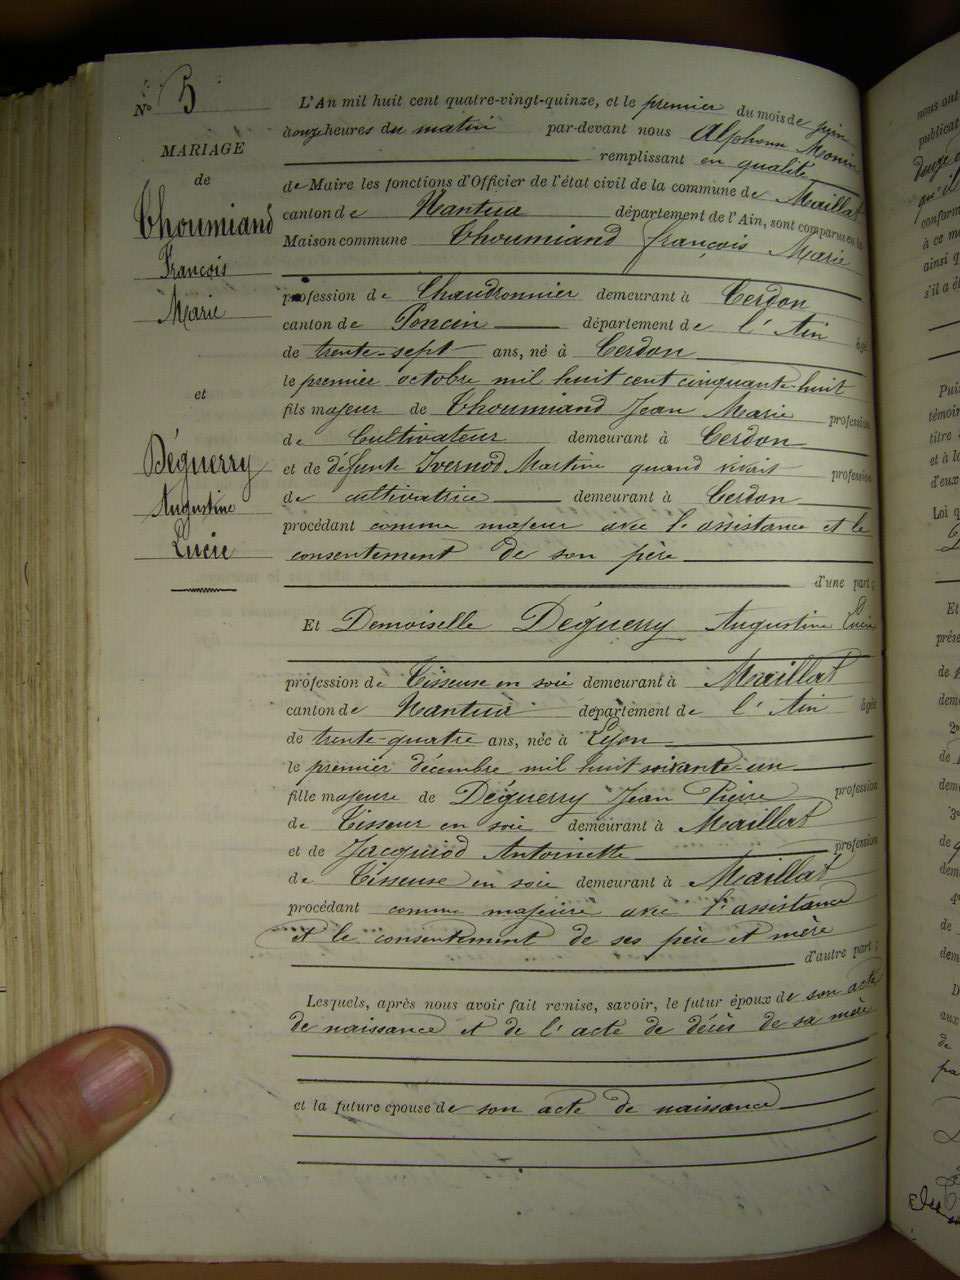 N° 5
MARIAGE
de
Thoumiand
François
Marie
et
Déguerry
Augustine
Lucie
L'An mil huit cent quatre-vingt-quinze, et le premier du mois de juin
à onze heures du matin par-devant nous Alphonse Monin
remplissant en qualité
de Maire les fonctions d'Officier de l'état civil de la commune de Maillat
canton de Nantua département de l'Ain, sont comparus en la
Maison commune Thoumiand François Marie
profession de Chaudronnier demeurant à Cerdon
canton de Poncin département de l'Ain âgé
de trente-sept ans, né à Cerdon
le premier octobre mil huit cent cinquante-huit
fils majeur de Thoumiand Jean Marie profession
de Cultivateur demeurant à Cerdon
et de défunte Ivernod Martine quand vivait profession
de cultivatrice demeurant à Cerdon
procédant comme majeur avec l'assistance et le
consentement de son père
d'une part ;
Et Demoiselle Déguerry Augustine Lucie
profession de Tisseuse en soie demeurant à Maillat
canton de Nantua département de l'Ain âgée
de trente-quatre ans, née à Lyon
le premier décembre mil huit soixante-un
fille majeure de Déguerry Jean Pierre profession
de Tisseur en soie demeurant à Maillat
et de Jacquiod Antoinette profession
de Tisseuse en soie demeurant à Maillat
procédant comme majeure avec l'assistance
et le consentement de ses père et mère
d'autre part ;
Lesquels, après nous avoir fait remise, savoir, le futur époux de son acte
de naissance et de l'acte de décès de sa mère
et la future épouse de son acte de naissance
nous ont
publicat
qu'il
conform
à ce m
ainsi q
s'il a é
Puis
témoin
titre
et à la
d'eux
Loi q
Et
prése
de
dem
2°
de
dem
3°
de
dem
4°
de
dem
D
aux
de
pa